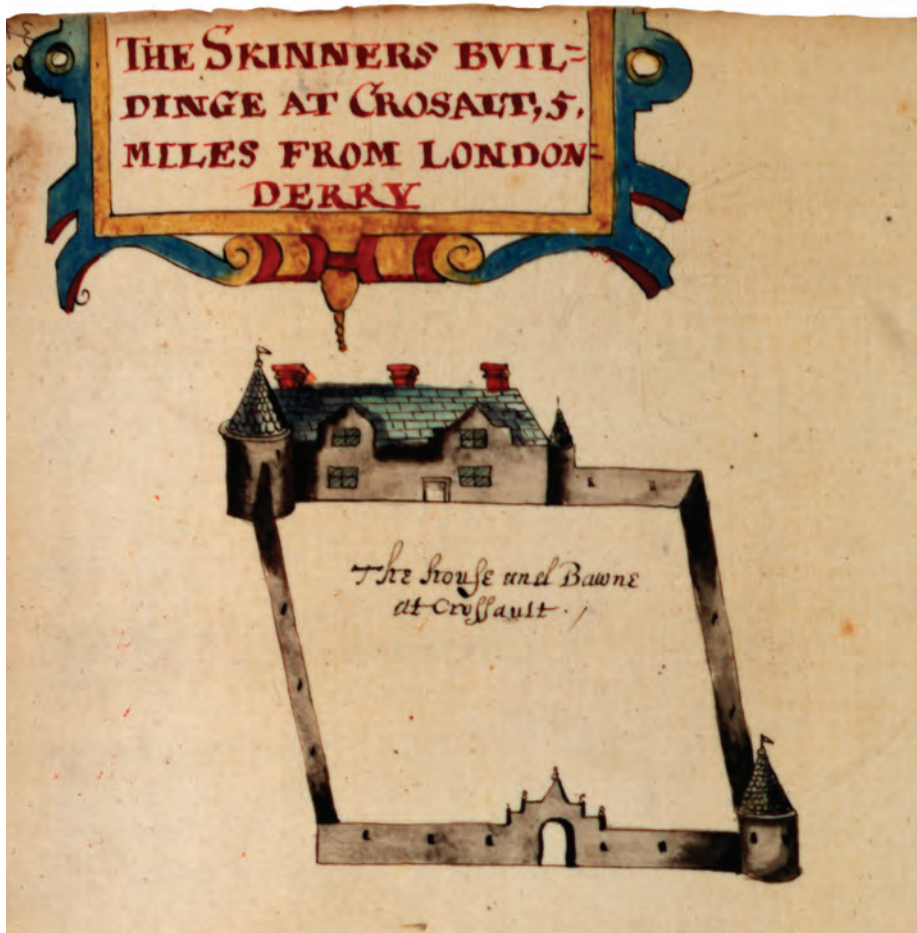 THE SKINNERS BVIL=
DINGE AT CROSALT, 5.
MILES FROM LONDON=
DERRY
The house and Bawne
at Crossault.